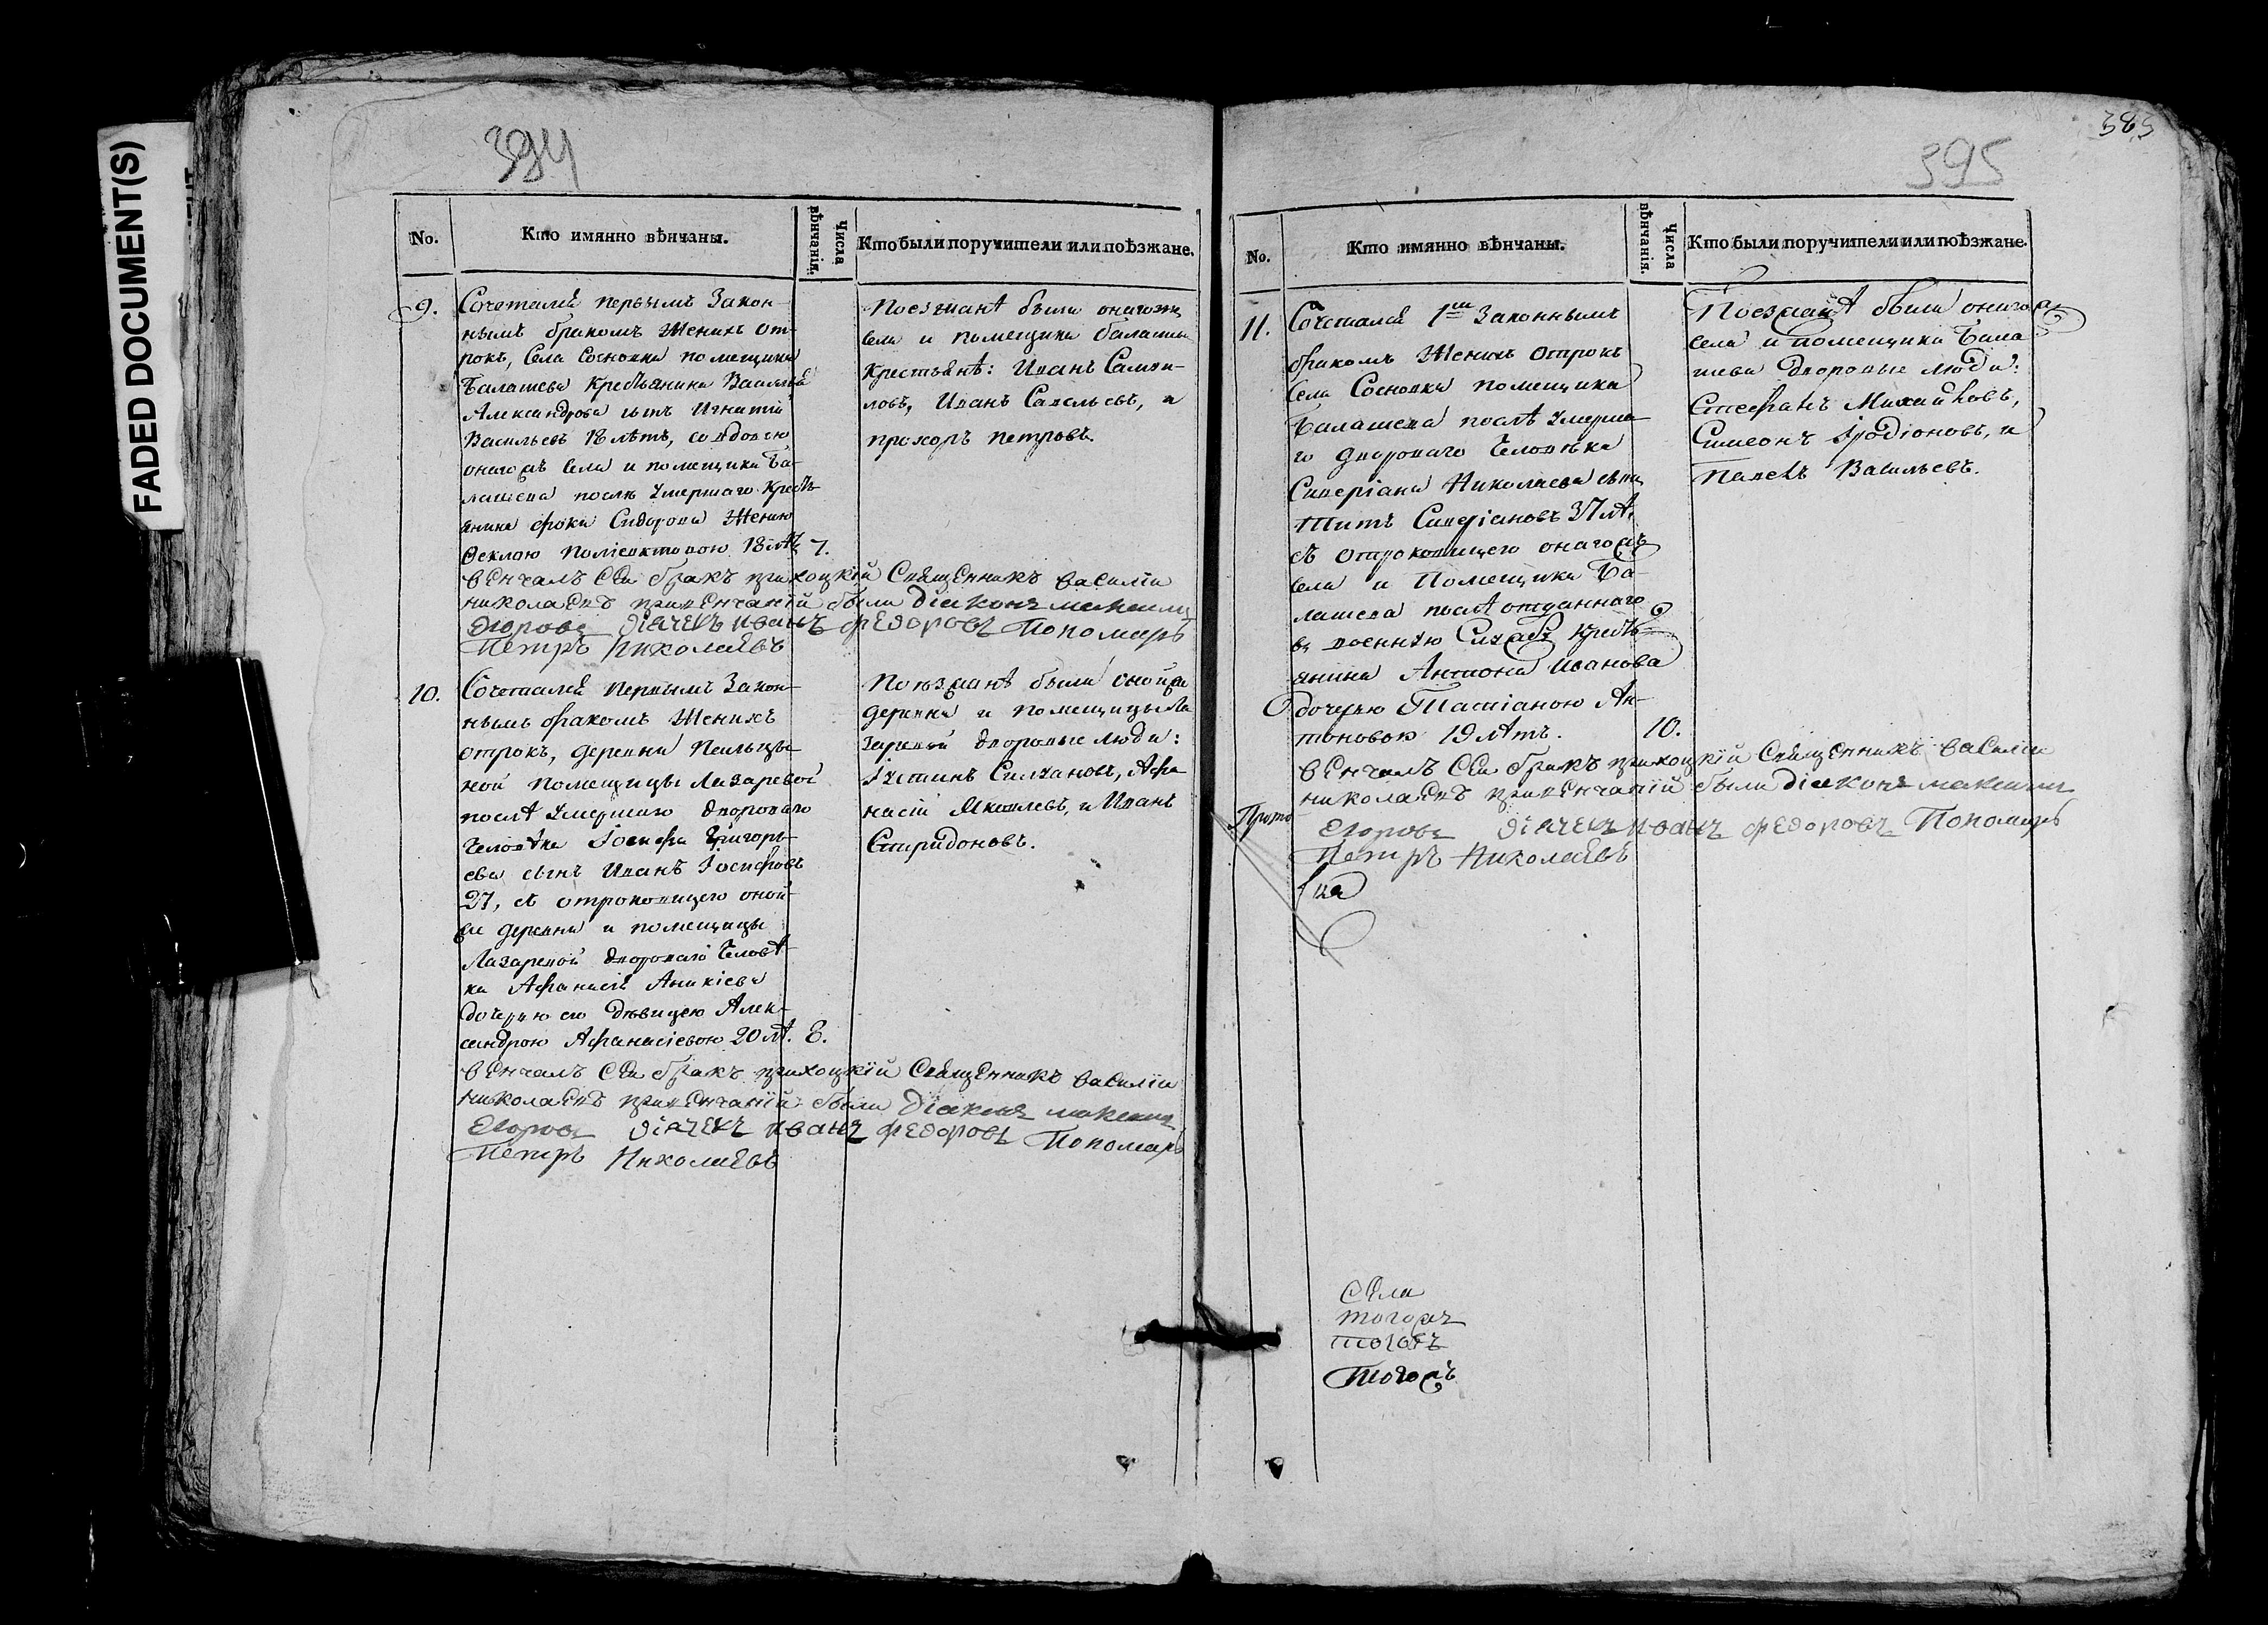 FADED DOCUMENT(S)
394
No.
Кто имянно вѣнчаны.
Числа вѣнчанія.
Кто были поручители или поѣзжане.
9.
Сочетался первымъ Закон-
нымъ бракомъ Женихъ от-
рокъ, Села Сосновки помещика
Балашева Крестьянина Василья
Александрова сынъ Игнатій
Васильевъ 18 лѣтъ, со вдовою
онагожъ Села и помещика Ба-
лашева послѣ Умершаго Кресть-
янина Фоки Сидорова Женою
Феклою 18 лѣтъ
7.
Поезжанѣ были онагожъ
села и помещика Балашева
Крестьянѣ: Иванъ Самои-
ловъ, Иванъ Савельевъ, и
прохоръ петровъ.
венчалъ сей бракъ прихоцкій Священникъ василіи
николаевъ привенчаній были діаконъ максимъ
Егоровъ діячекъ иванъ федоровъ Пономарь
Петръ Николаевъ
10.
Сочетался первымъ Закон-
нымъ бракомъ Женихъ
отрокъ, деревни
ной помещицы Лазаревой
послѣ Умершаго двороваго
Человѣка Іосифа Григорь-
ева сынъ Иванъ Іосифовъ
27, съ отроковицею оной-
же деревни и помещицы
Лазаревой двороваго Человѣ-
ка Афанасія Аникіева
дочерью его дѣвицею Алек-
сандрою Афанасіевою 20 лѣ.
8.
Поѣзжанѣ были онойже
деревни и помещицы Ла
заревой дворовые люди:
Іустинъ Силуановъ, Афа
насіи Яковлевъ, и Иванъ
Спиридоновъ.
венчалъ сей бракъ прихоцкій Священникъ василіи
николаевъ привенчаній были діаконъ максимъ
Егоровъ діячекъ иванъ федоровъ Пономарь
Петръ Николаевъ
385
395
No.
Кто имянно вѣнчаны.
Числа вѣнчанія.
Кто были поручители или поѣзжане.
11.
Сочетался 1мъ Законнымъ
бракомъ Женихъ отрокъ
Села Сосновки помещика
Балашева послѣ Умерша-
го двороваго Человѣка
Северіана Николаева сынъ
Титъ Северіановъ 37 лѣ.
съ отроковицею онагожъ
села и Помещика Ба-
лашева послѣ отданнаго
въ военную Службу Кресть-
янина Антона Иванова
дочерью Татіаною Ан-
тоновою 19 лѣтъ.
10.
Поезжанѣ были онагожъ
села и помещика Бала
шева дворовые люди:
Стефанъ Михайловъ,
Симеонъ Іродіоновъ, и
Павелъ Васильевъ.
венчалъ сей бракъ прихоцкій Священникъ василіи
николаевъ привенчаній были діаконъ максимъ
Прото
Егоровъ діячекъ иванъ федоровъ Пономарь
Петръ Николаевъ
села
тогожъ
тогожъ
Тогожъ